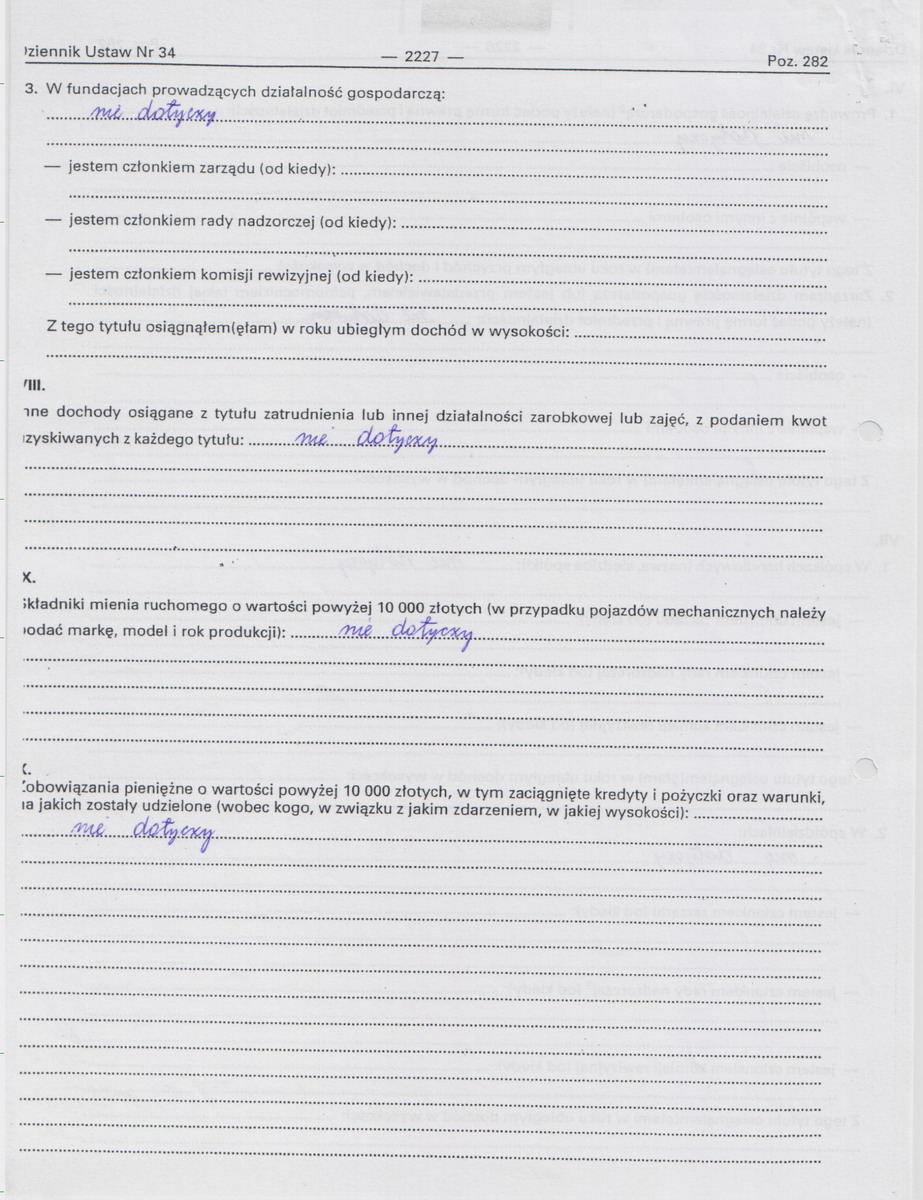 ziennik Ustaw Nr 34 — 2227 — Poz. 282
3. W fundacjach prowadzących działalność gospodarczą:
nie dotyczy
— jestem członkiem zarządu (od kiedy):
— jestem członkiem rady nadzorczej (od kiedy):
— jestem członkiem komisji rewizyjnej (od kiedy):
Z tego tytułu osiągnąłem(ęłam) w roku ubiegłym dochód w wysokości:
III.
nne dochody osiągane z tytułu zatrudnienia lub innej działalności zarobkowej lub zajęć, z podaniem kwot
zyskiwanych z każdego tytułu: nie dotyczy
X.
kładniki mienia ruchomego o wartości powyżej 10 000 złotych (w przypadku pojazdów mechanicznych należy
odać markę, model i rok produkcji): nie dotyczy
obowiązania pieniężne o wartości powyżej 10 000 złotych, w tym zaciągnięte kredyty i pożyczki oraz warunki,
a jakich zostały udzielone (wobec kogo, w związku z jakim zdarzeniem, w jakiej wysokości):
nie dotyczy